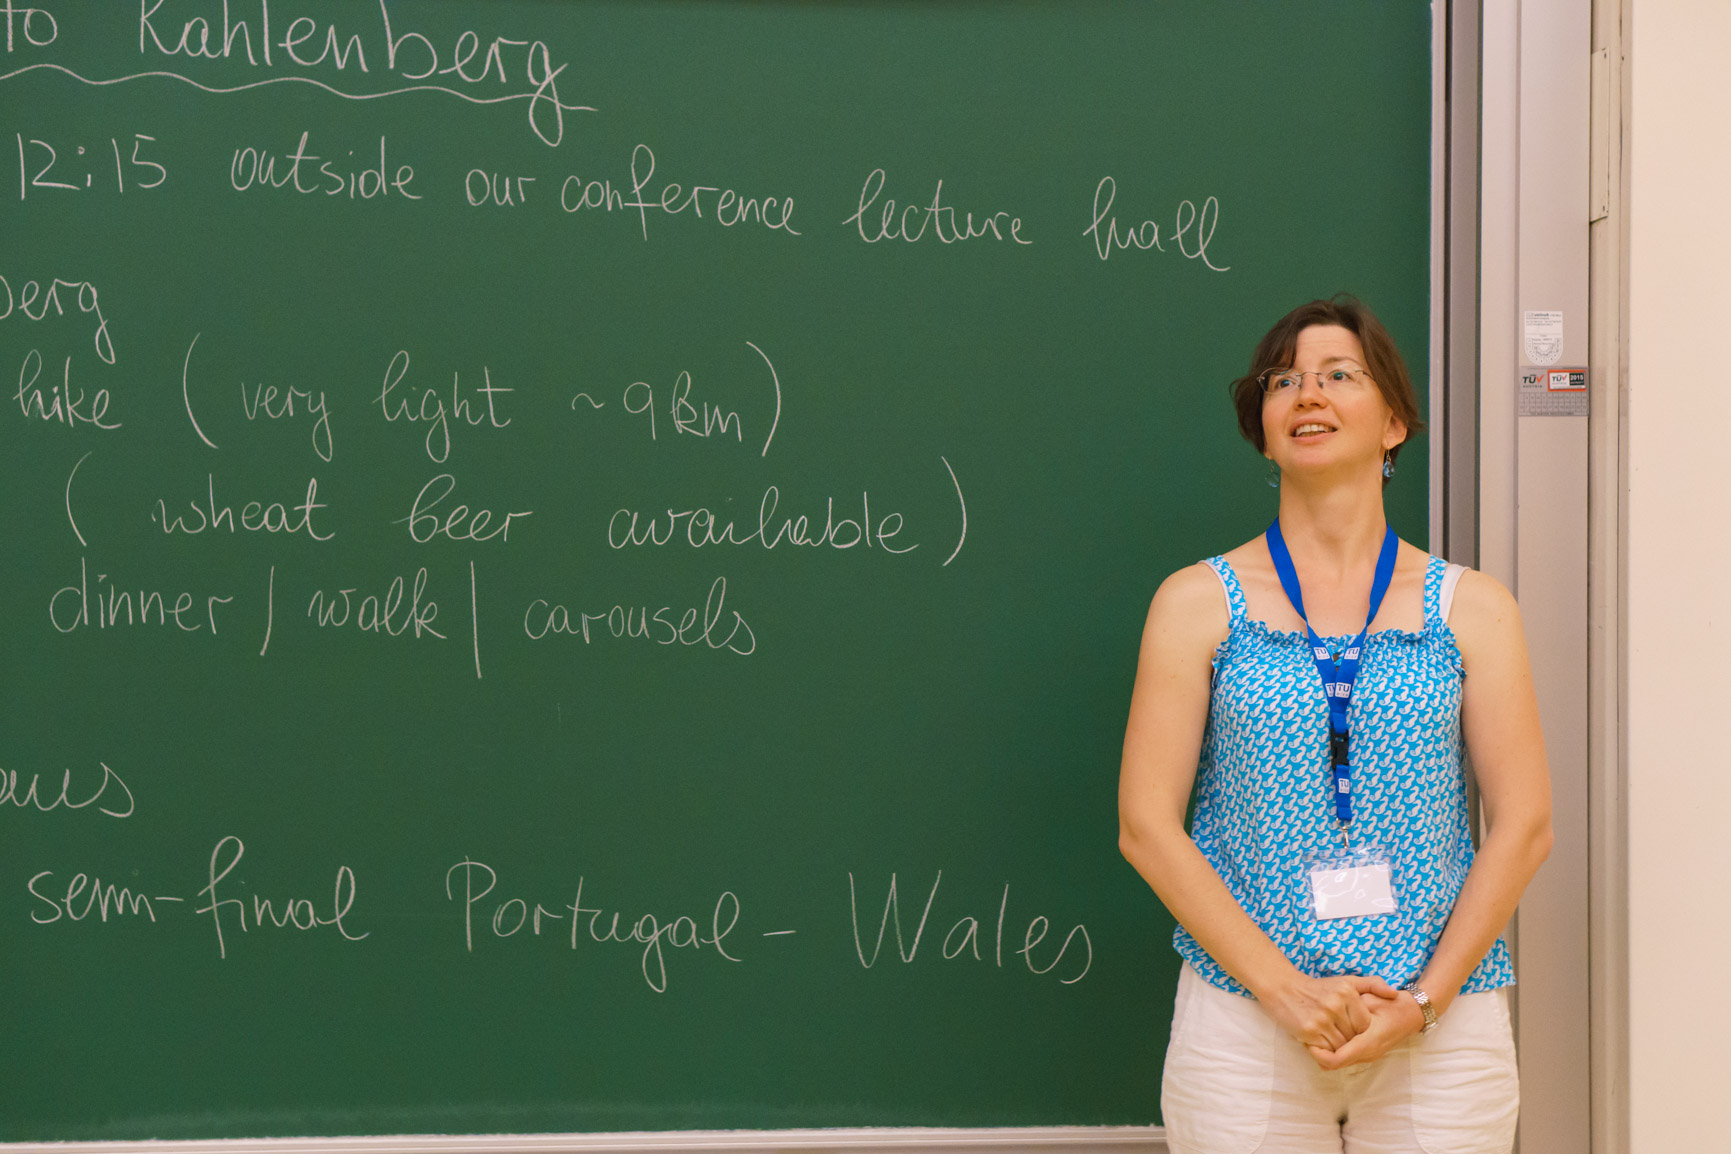 to Kahlenberg
12:15 outside our conference lecture hall
berg
hike (very light ~9km)
(wheat beer available)
dinner / walk / carousels
aus
semi-final Portugal - Wales
TÜV
TÜV 2015
TU TU
TU
TU